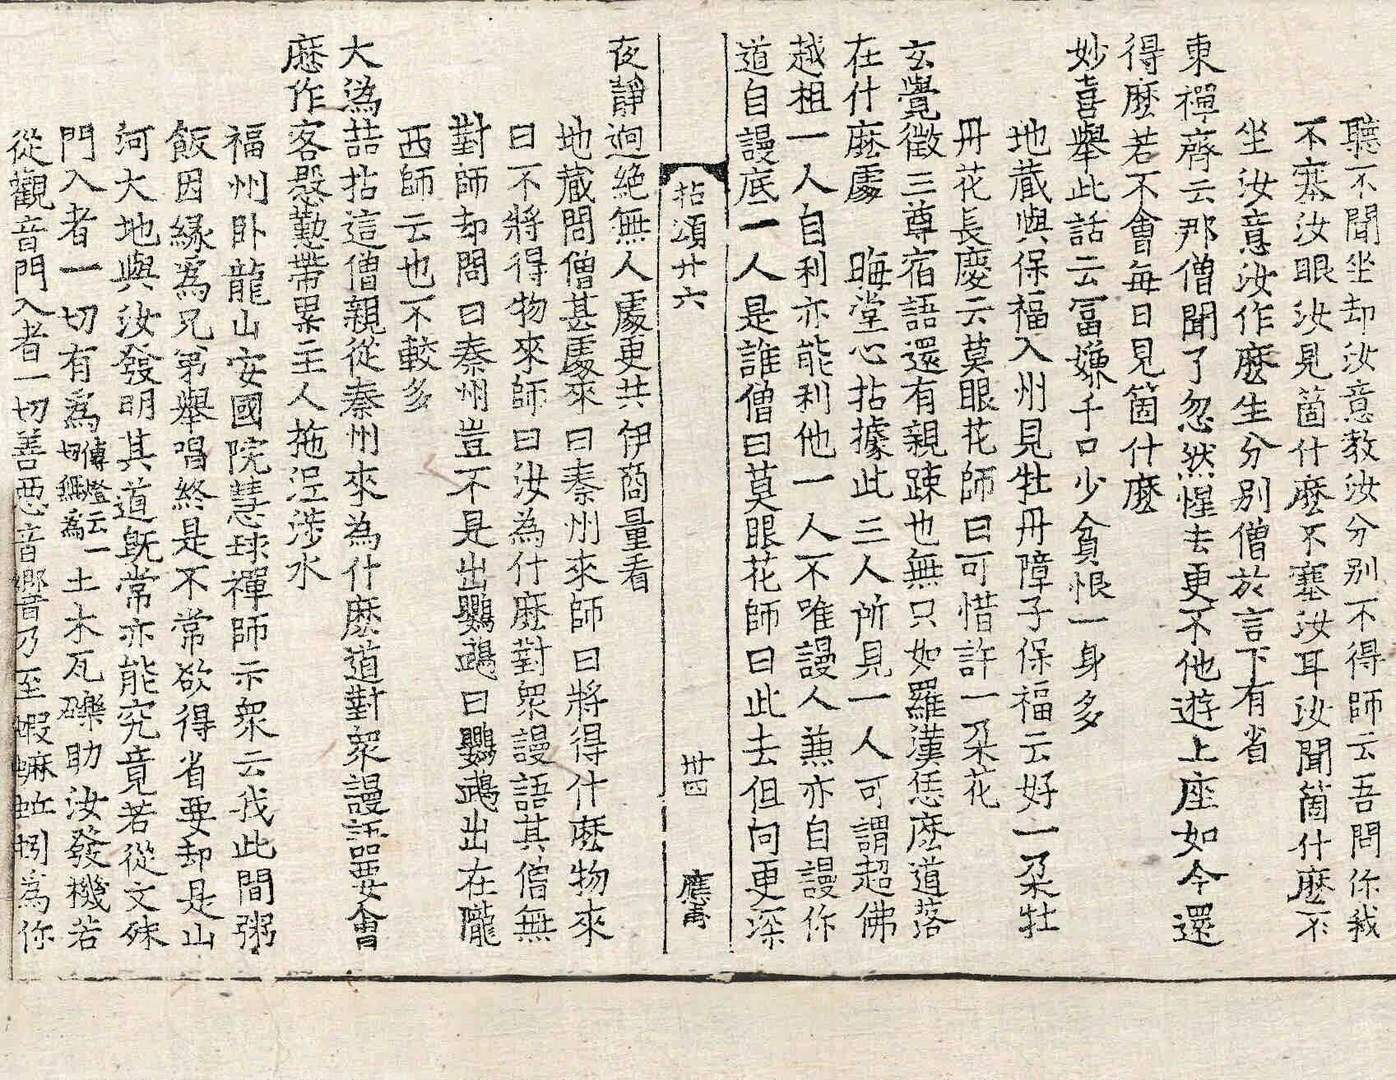 聽不聞坐却汝意教汝分别不得師云吾問你我
不塞汝眼汝見箇什麽不塞汝耳汝聞箇什麽不
坐汝意汝作麽生分别僧於言下有省
東禪齊云那僧聞了忽然惺去更不他遊上座如今還
得麽若不會每日見箇什麽
妙喜舉此話云冨嫌千口少貧恨一身多
地蔵與保福入州見牡丹障子保福云好一朶牡
丹花長慶云莫眼花師曰可惜許一朶花
玄覺徵三尊宿語還有親踈也無只如羅漢恁麽道落
在什麽處 晦堂心拈據此三人所見一人可謂超佛
越祖一人自利亦能利他一人不唯謾人兼亦自謾你
道自謾底一人是誰僧曰莫眼花師曰此去但向更深
拈頌廿六 卅四 應
夜靜迥絶無人處更共伊商量看
地蔵問僧甚處來曰秦州來師曰將得什麽物來
曰不將得物來師曰汝為什麽對衆謾語其僧無
對師却問曰秦州豈不是出鸚鵡曰鸚鵡出在隴
西師云也不較多
大潙喆拈這僧親從秦州來為什麽道對衆謾語要會
麽作客慇懃帶累主人拖泥涉水
福州卧龍山安國院慧球禪師示衆云我此間粥
飯因緣爲兄弟舉唱終是不常欲得省要却是山
河大地與汝發明其道既常亦能究竟若從文殊
門入者一切有爲傳燈云一切無爲土木瓦礫助汝發機若
從觀音門入者一切善惡音響乃至蝦蟆蚯蚓為你